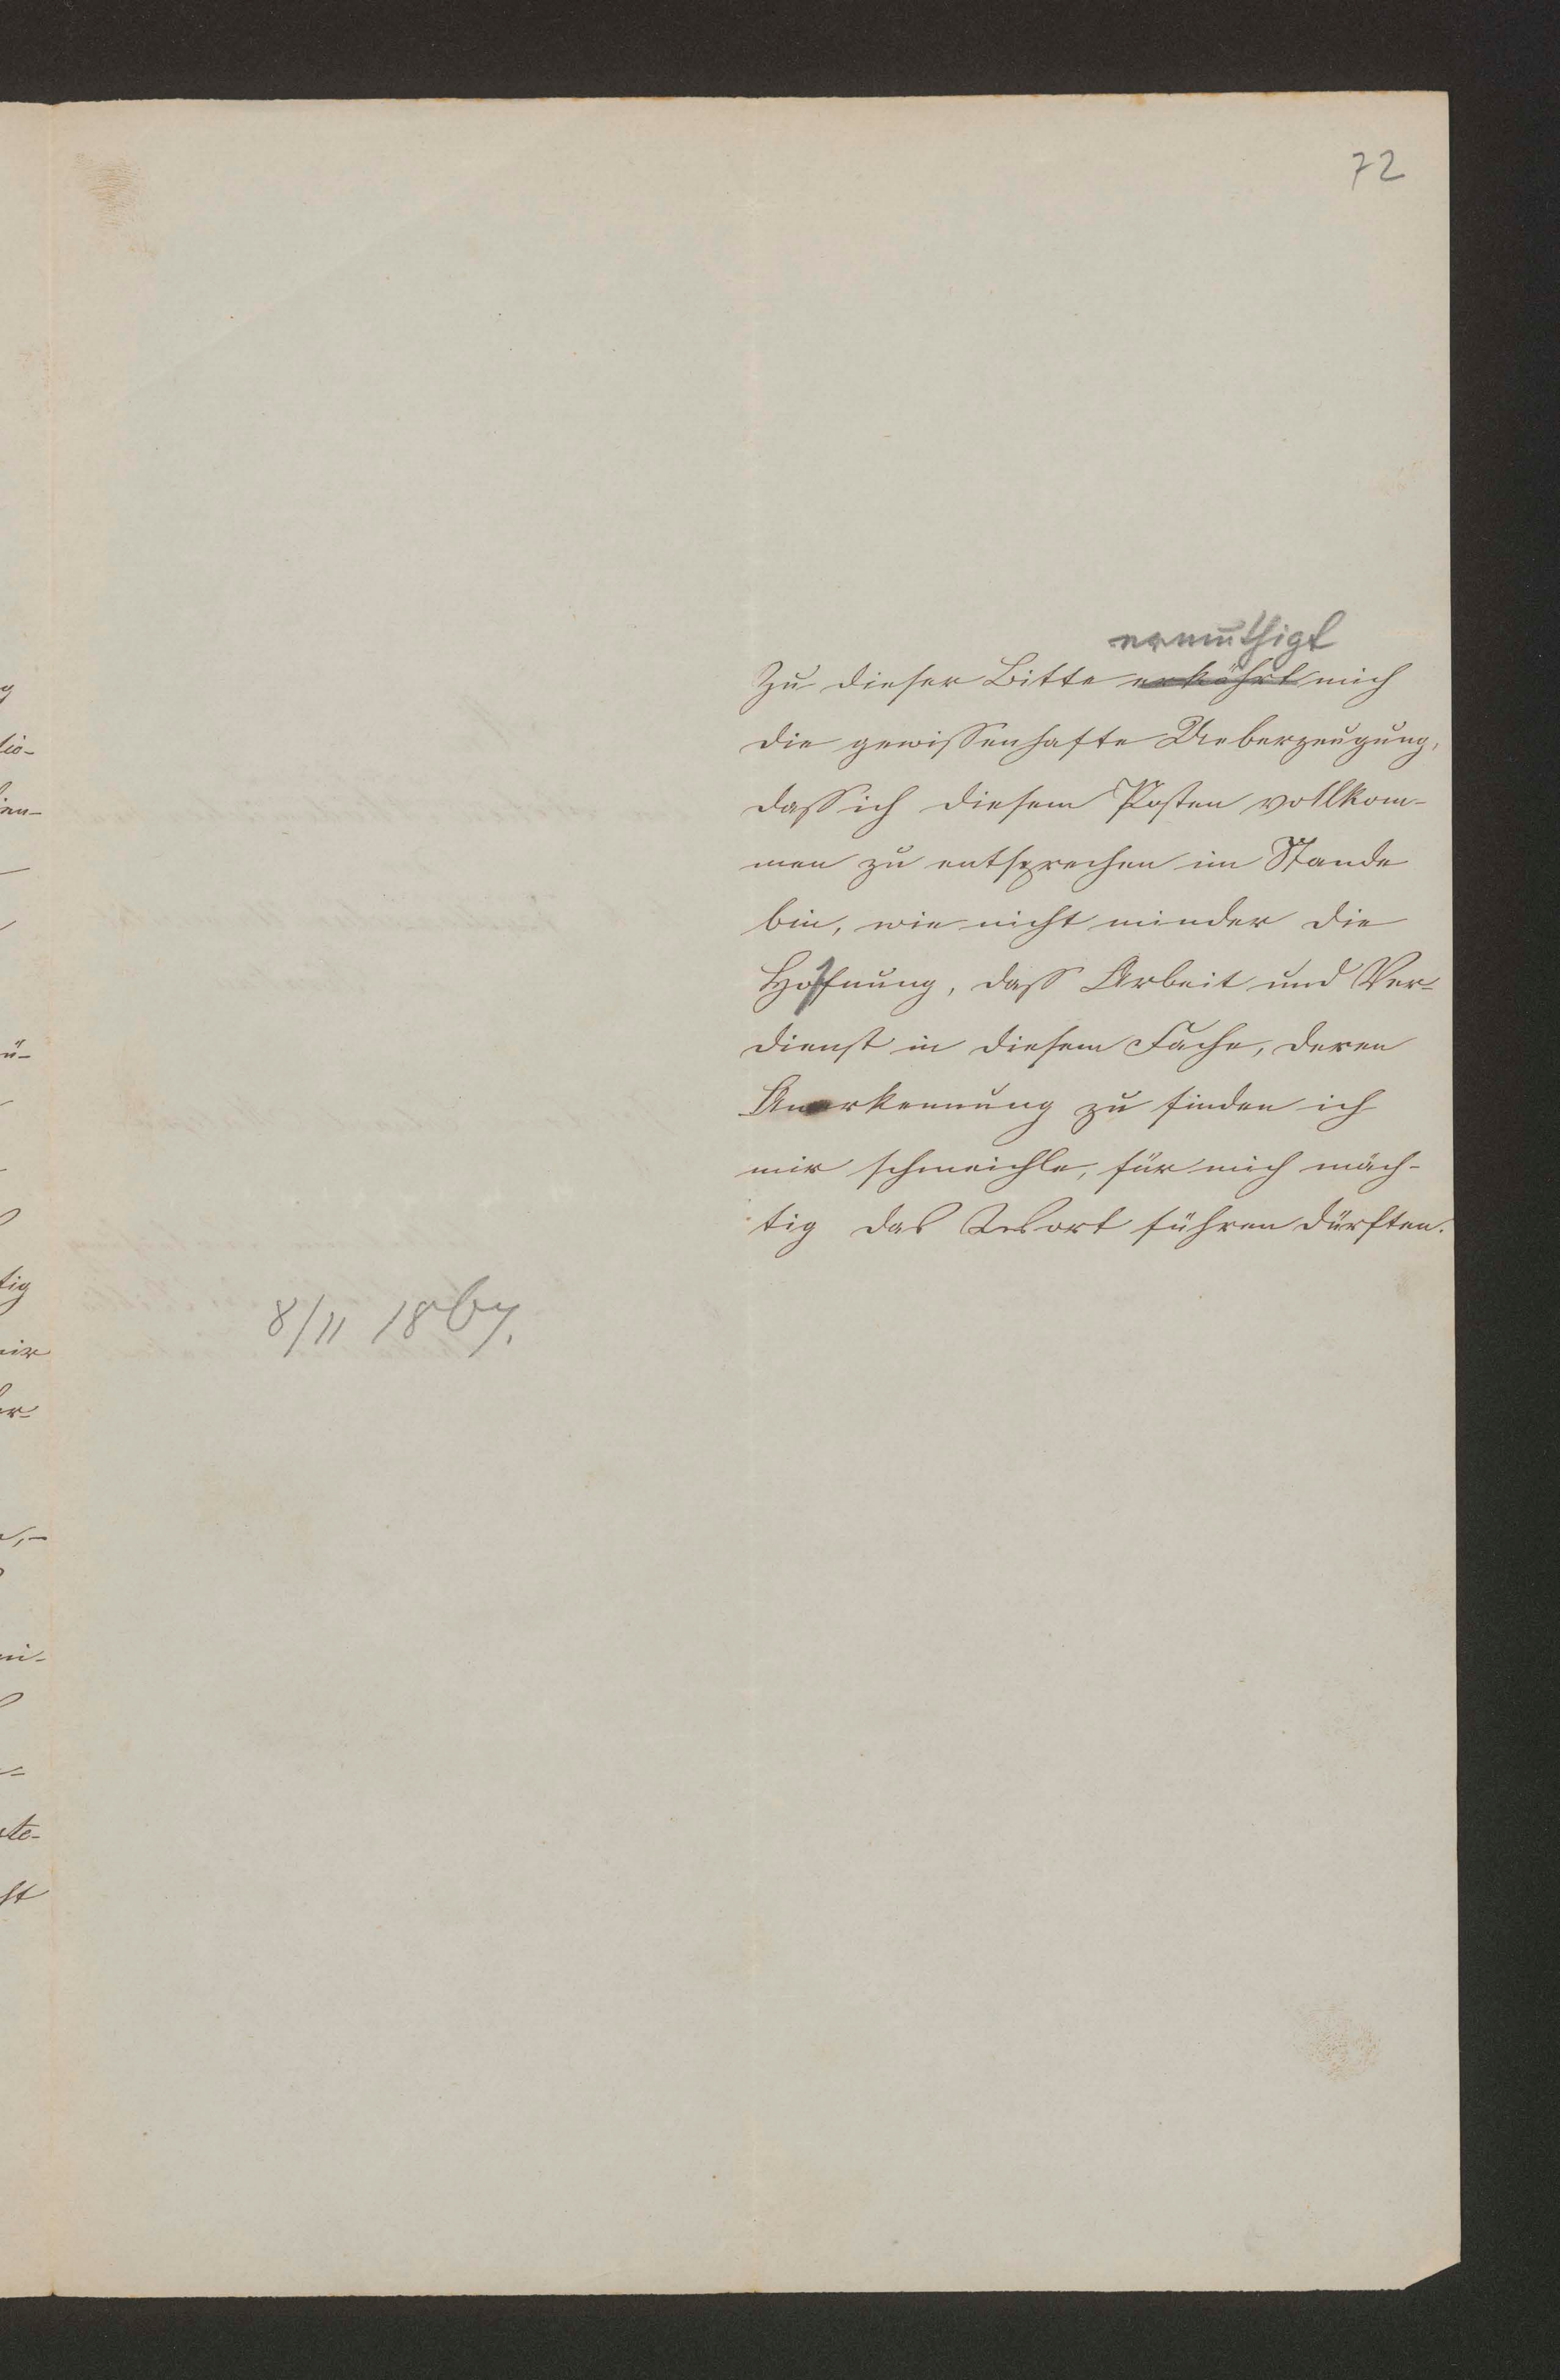 72
ermuthigt
Zu dieser Bitte mich
die gewissenhafte Ueberzeugung,
dass ich diesem Posten vollkom-
men zu entsprechen im Stande
bin, wie nicht minder die
Hoffnung, dass Arbeit und Ver-
dienst in diesem Fache, deren
Anerkennung zu finden ich
mir schmeichle, für mich mäch-
tig das Wort führen dürften.
8/11 1867.